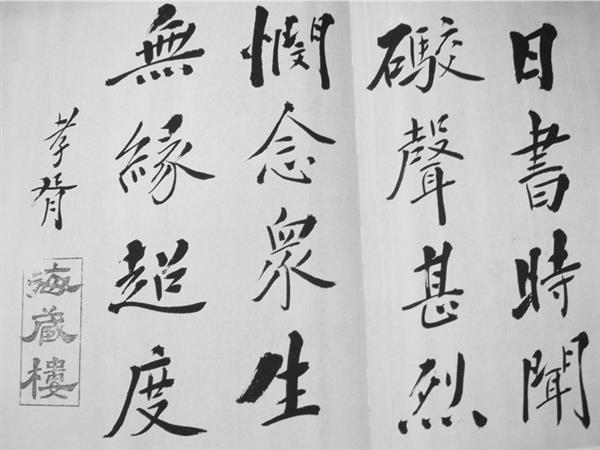 日書時聞
礮聲甚烈
憫念眾生
無緣超度
孝胥
海藏樓